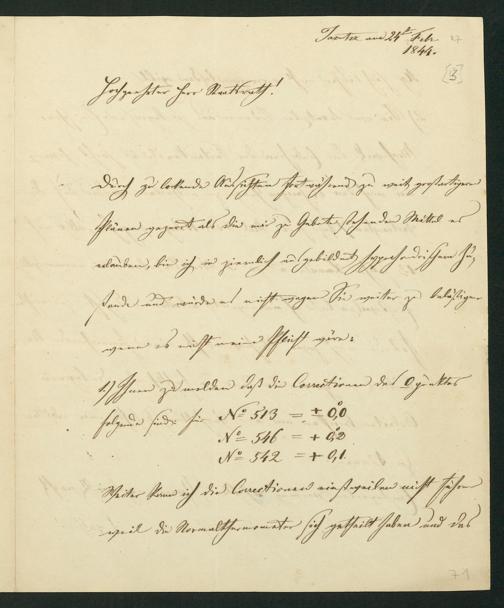 am 24t Febr.
1844.
27
[3]
Hochgeehrter Herr Staatsrath!
Durch zu lockende Aussichten fortwährend zu weit großartigern
Plänen gezerrt als die mir zu Gebote stehenden Mittel es
erlauben, bin ich in ziemlich ausgebildet hypochondrischem Zu-
stande und würde es nicht wagen Sie weiter zu belästigen
wenn es nicht meine Pflicht wäre:
1.) Ihnen zu melden daß die Correctionen des 0punktes
folgende sind: für No 513 = ± 0°,0
No 546 = + 0°,2
No 542 = + 0,1
Weiter kann ich die Correctionen einstweilen nicht führen
weil die Normalthermometer sich getheilt haben und das
71